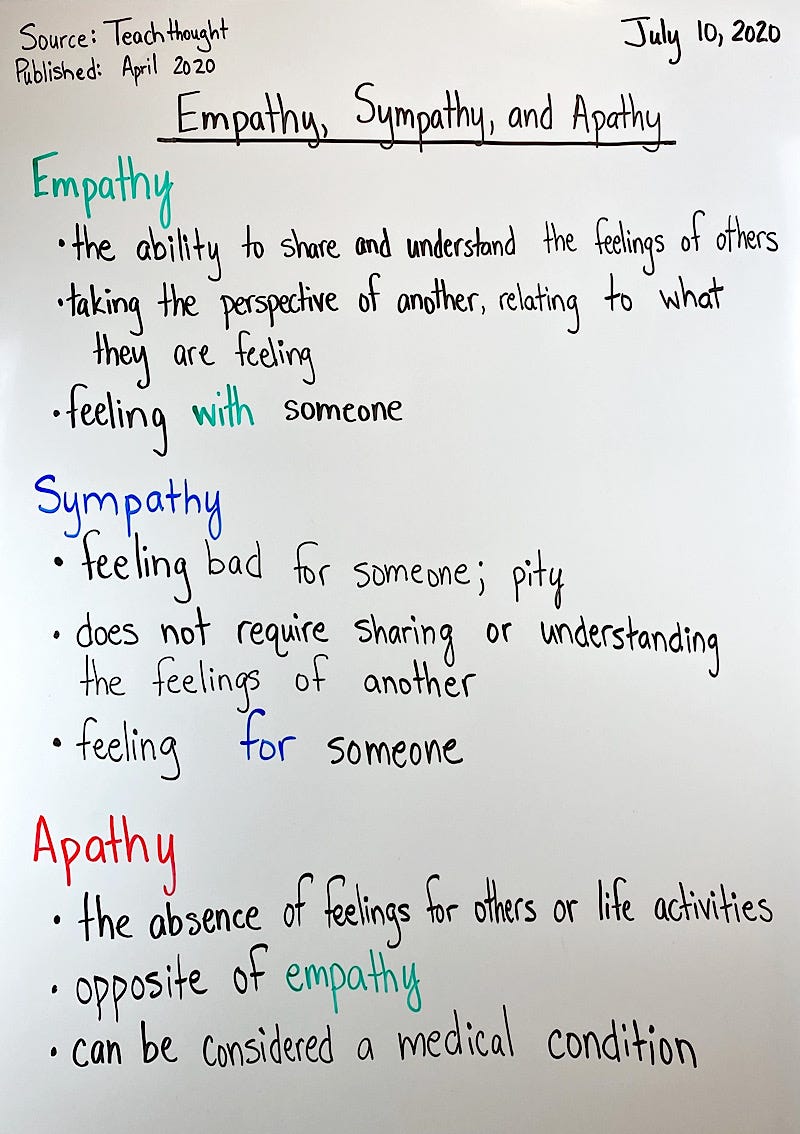 Source: Teachthought
July 10, 2020
Published: April 2020
Empathy, Sympathy, and Apathy
Empathy
• the ability to share and understand the feelings of others
• taking the perspective of another, relating to what
they are feeling
• feeling with someone
Sympathy
• feeling bad for someone; pity
• does not require sharing or understanding
the feelings of another
• feeling for someone
Apathy
• the absence of feelings for others or life activities
• opposite of empathy
• can be considered a medical condition